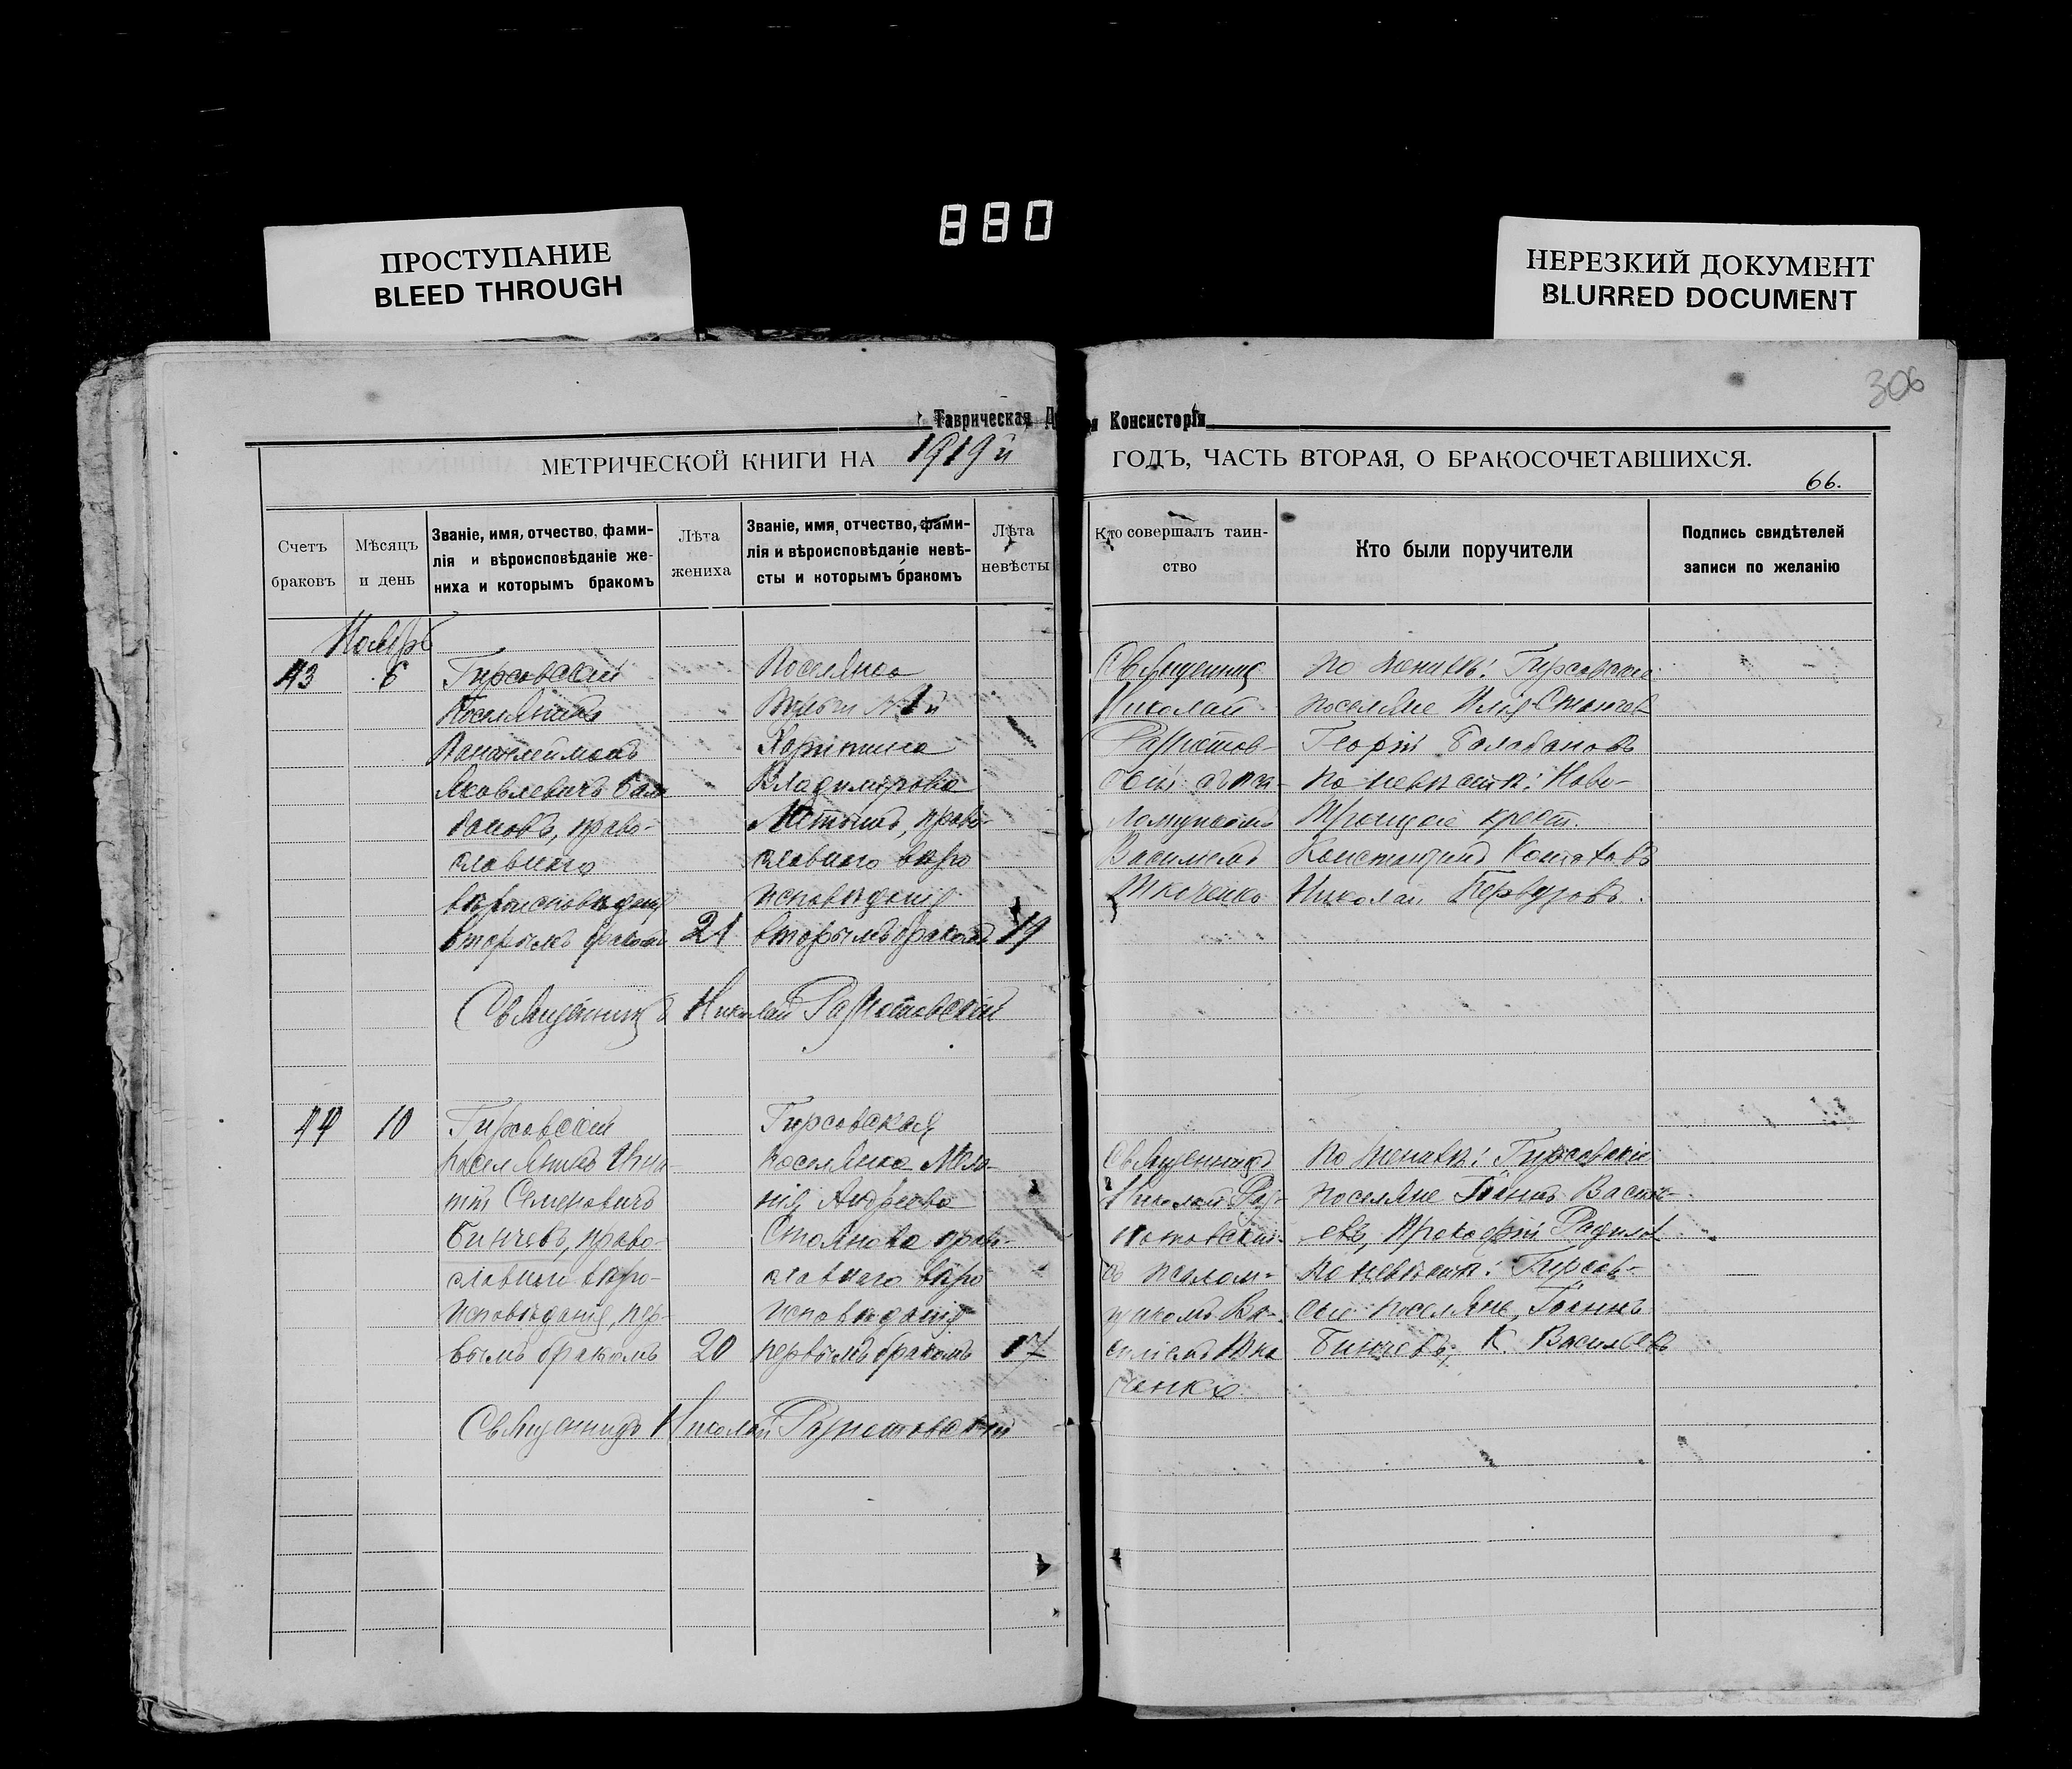 880
ПРОСТУПАНИЕ
BLEED THROUGH
НЕРЕЗКИЙ ДОКУМЕНТ
BLURRED DOCUMENT
306
Таврическая Д я Консисторія
МЕТРИЧЕСКОЙ КНИГИ НА 1919й
ГОДЪ, ЧАСТЬ ВТОРАЯ, О БРАКОСОЧЕТАВШИХСЯ.
66.
Счетъ браковъ
Мѣсяцъ и день
Званіе, имя, отчество, фами-
лія и вѣроисповѣданіе же-
ниха и которымъ бракомъ
Лѣта жениха
Званіе, имя, отчество, фами-
лія и вѣроисповѣданіе невѣ-
сты и которымъ бракомъ
Лѣта невѣсты
Кто совершалъ таин-
ство
Кто были поручители
Подпись свидѣтелей
записи по желанію
Ноябрь
43
6
Гирсовскій
Поселянинъ
Пантелеймонъ
Яковлевичъ Бала
бановъ, право-
славнаго
вѣроисповѣданія
вторымъ бракомъ
21
Поселянка
Харитина
Владимірова
право-
славнаго вѣро
исповѣданія
вторымъ бракомъ
19
Священникъ
Николай
Разнатов-
скій съ пса-
ломщикомъ
Василіемъ
Ткаченко
По женихѣ: Гирсовскіе
поселяне Илія Стянчев
Георгій Балабановъ
По невѣстѣ: Ново-
Троицкіе крест.
Константинъ
Николай
Священникъ Николай Разнатовскій
44
10
Гирсовскій
поселянинъ Игна-
тій Семеновичъ
Бинчевъ, право-
славный вѣро-
исповѣданія, пер-
вымъ бракомъ
20
Гирсовская
поселянка Мела-
нія Андреева
Стоянова прав-
славнаго вѣро
исповѣданія
первымъ бракомъ
17
Священникъ
Николай Раз-
натовскій
съ псалом-
щикомъ Ва-
силіемъ Тка
ченко
По женихѣ: Гирсовскіе
поселяне Іоаннъ Василь-
евъ, Прокофій
По невѣстѣ: Гирсов-
скіе поселяне, Іоаннъ
Бинчевъ, К. Васильевъ
Священникъ Николай Разнатовскій